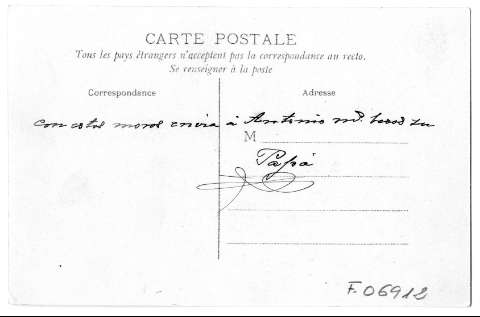 CARTE POSTALE
Tous les pays étrangers n'acceptent pas la correspondance au recto.
Se renseigner à la poste
Correspondance
Adresse
con estos moros envia á Antonio Mª. besos su
M
Papá
F. 06912